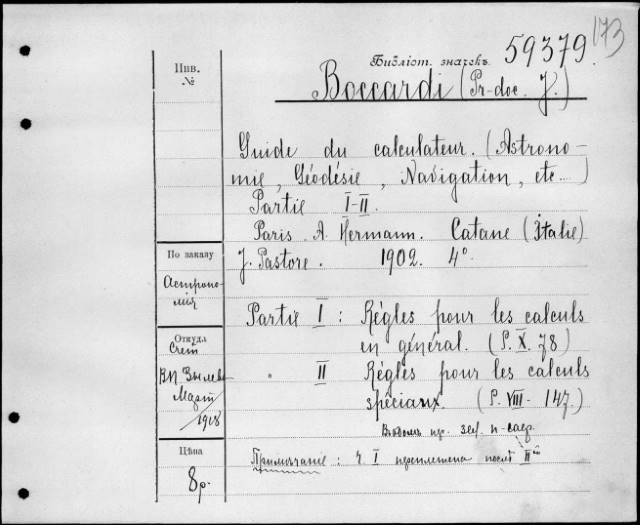 173
Библіот. значекъ 59379.
Инв.
№
Boccardi (Pr-doc. J.)
Guide du calculateur. (Astrono-
mie, Géodésie, Navigation, etc...)
Partie I-II.
Paris. A. Hermann. Catane (Italie)
J. Pastore. 1902. 4°.
По заказу
Астроно-
мія
Partie I : Régles pour les calculs
en général. (P. X. 78)
Откуда
Счет
" II Régles pour les calculs
spéciaux. (P. VIII - 147.)
Март
1908
Цѣна
8 р.
Примѣчаніе : ч. I переплетена послѣ II